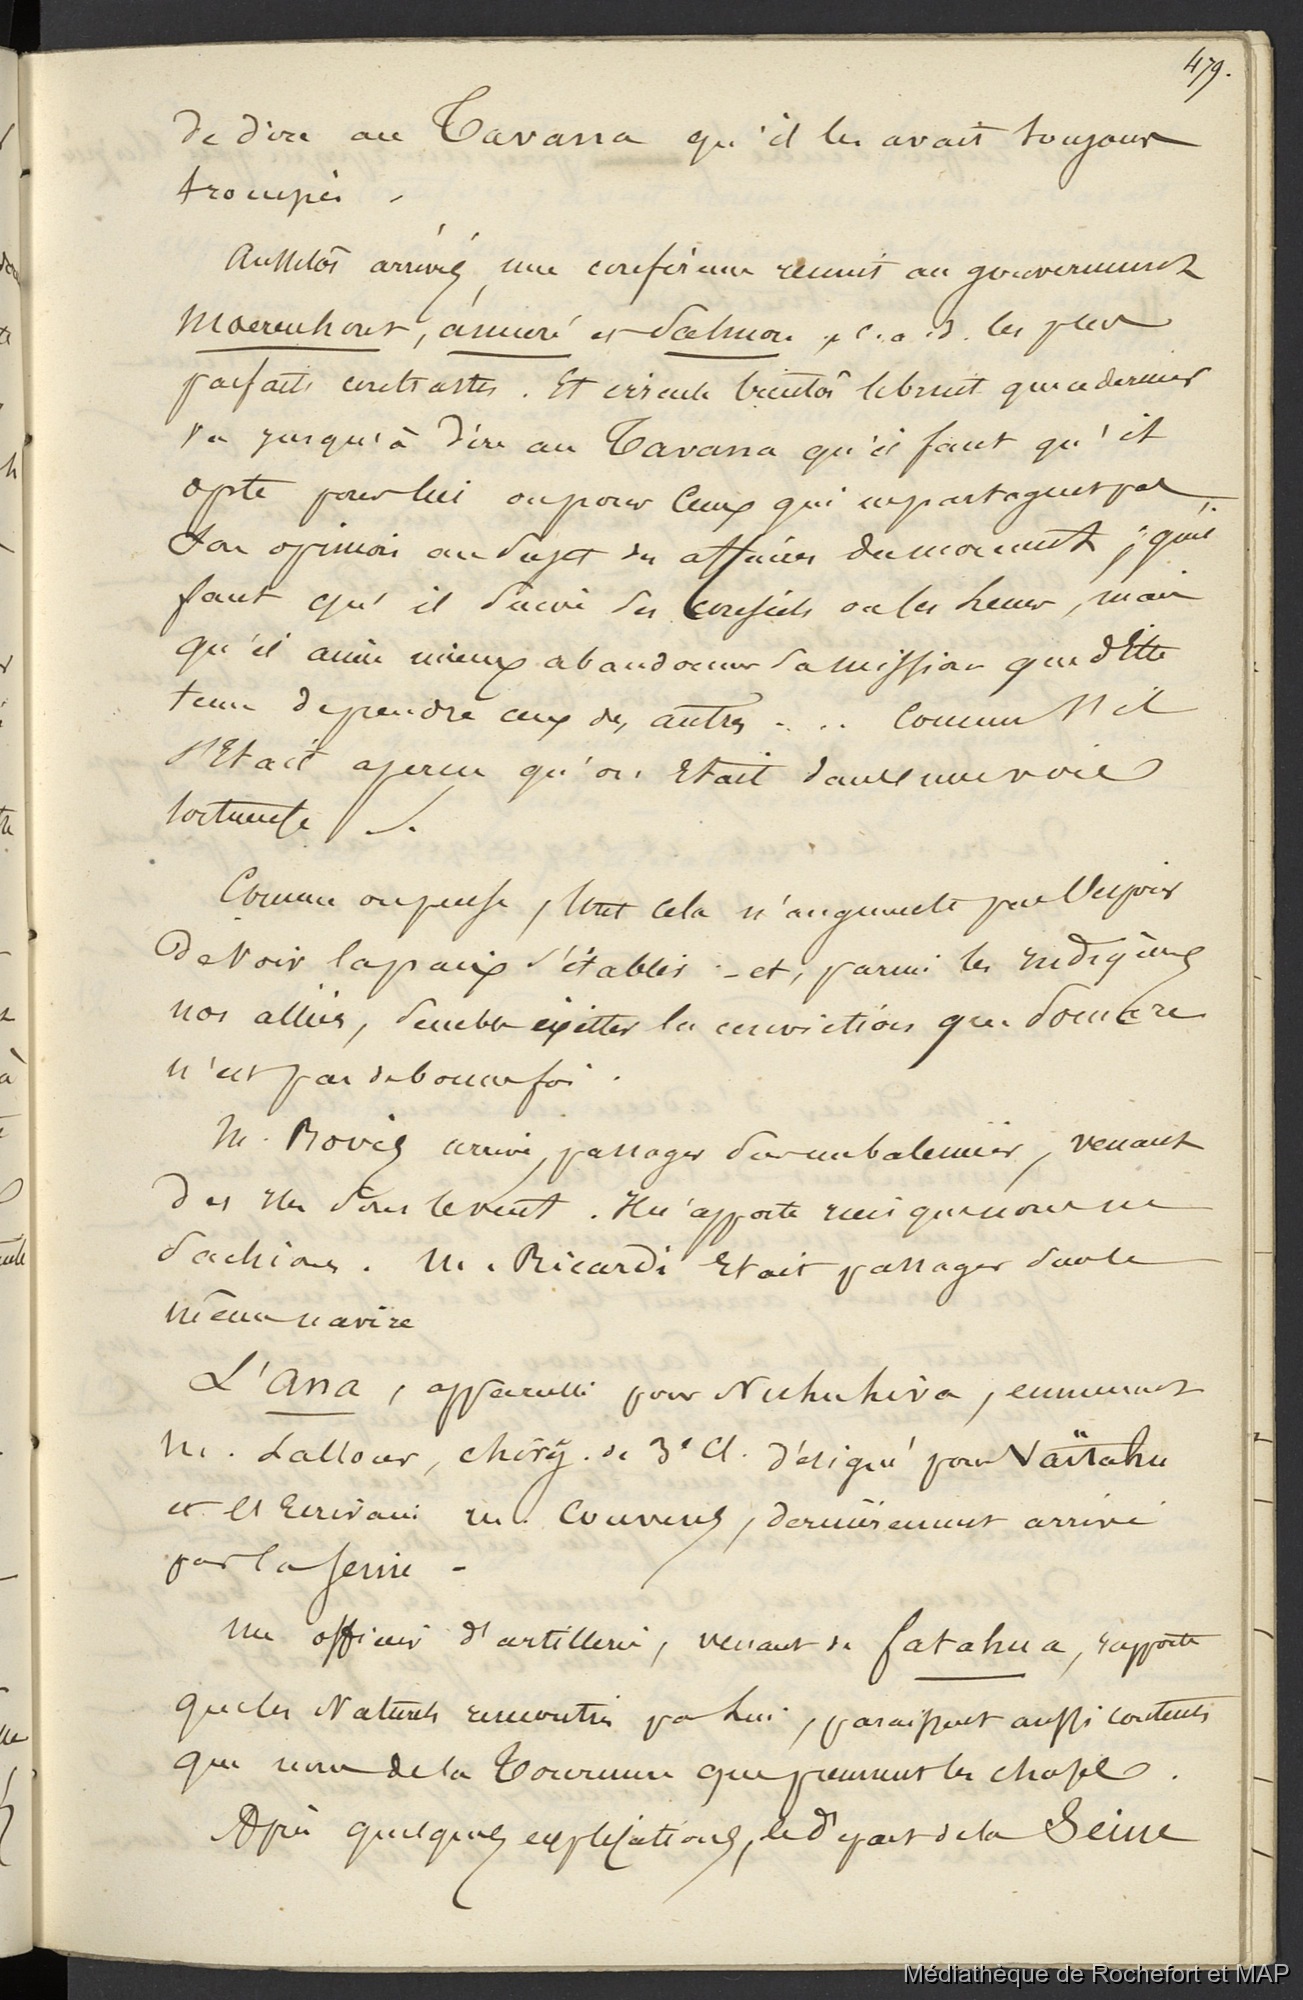 479.
de dire au Tavana qu'il les avait toujours
trompés.
Aussitôt arrivés, une conférence réunit au gouvernement
Moerenhout, ámuré et Salmon, c.a.d. les plus
parfaits contrastes. Et circule bientôt le bruit que ce dernier
va jusqu'à dire au Tavana qu'il faut qu'il
opte pour lui ou pour ceux qui ne partagent pas
son opinion au sujet des affaires du moment; qu'il
faut qu'il suive ses conseils ou les leurs, mais
qu'il aime mieux abandonner sa mission que d'Etre
tenu dependre ceux des autres ... Comme s'il
s'Etait aperçu qu'on Etait dans une voie
tortueuse.
Comme on pense, tout cela n'augmente pas l'espoir
de voir la paix s'établir - et, parmi les indigènes
nos alliés, semble exister la conviction que
n'est pas de bonne foi.
M. Rovig arrive, passager sur un baleinier, venant
des iles sous le vent. Il n'apporte rien que nous ne
sachions. M. Ricardi Etait passager sur le
même navire
L'Ana, appareille pour Nuhuhiva, emmenant
M. Lallour, chirg. de 3e Cl. désigné pour Vaïtahu
et l'Ecrivain M. Couvens, dernièrement arrivé
par la Seine -
Un officier d'artillerie, venant de fatahua, rapporte
que les Naturels rencontrés par lui, paraissent aussi contents
que nous de la Tournure que prennent les choses.
Après quelques explications, le départ de la Seine
Médiathèque de Rochefort et MAP